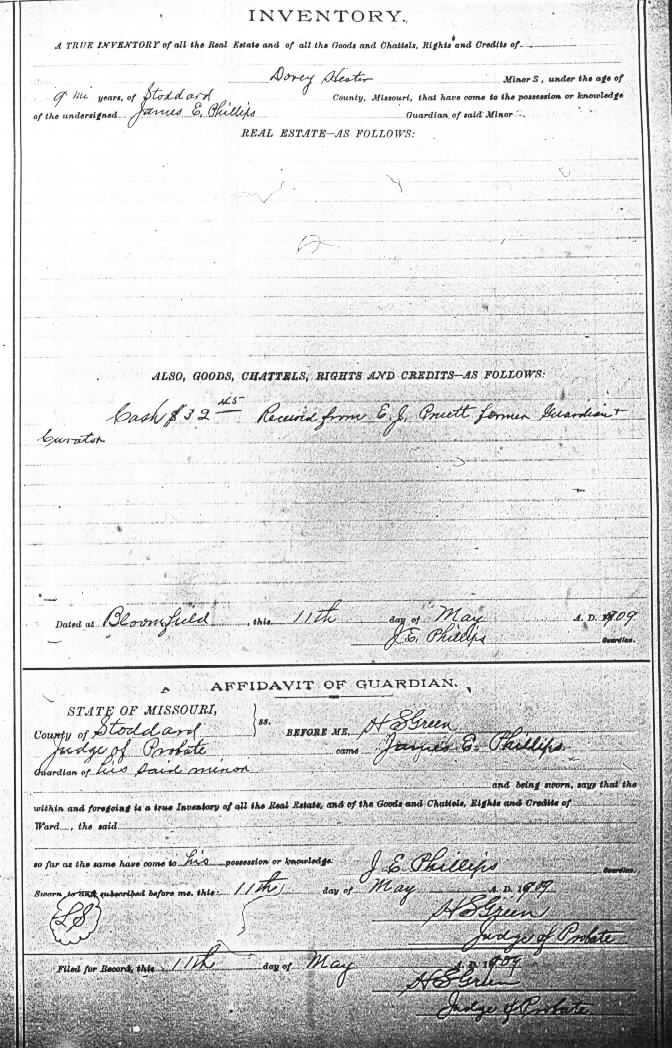 INVENTORY.
A TRUE INVENTORY of all the Real Estate and of all the Goods and Chattels, Rights and Credits of
Dovey Hester Minor S, under the age of
years, of Stoddard County, Missouri, that have come to the possession or knowledge
of the undersigned James E. Phillips Guardian of said Minor
REAL ESTATE—AS FOLLOWS:
ALSO, GOODS, CHATTELS, RIGHTS AND CREDITS—AS FOLLOWS:
Cash $32 45 Received from E. J. Pruett former Guardian +
Curator
Dated at Bloomfield, this 11th day of May A. D. 1909
J. E. Phillips Guardian.
AFFIDAVIT OF GUARDIAN.
STATE OF MISSOURI,
County of Stoddard ss. BEFORE ME, H S Green
Judge of Probate came James E. Phillips
Guardian of his said minor
and being sworn, says that the
within and foregoing is a true Inventory of all the Real Estate, and of the Goods and Chattels, Rights and Credits of
Ward, the said
so far as the same have come to his possession or knowledge. J E Phillips Guardian.
Sworn to and subscribed before me, this 11th day of May A. D. 1909
LS H S Green
Judge of Probate
Filed for Record, this 11th day of May A. D. 1909
H S Green
Judge of Probate